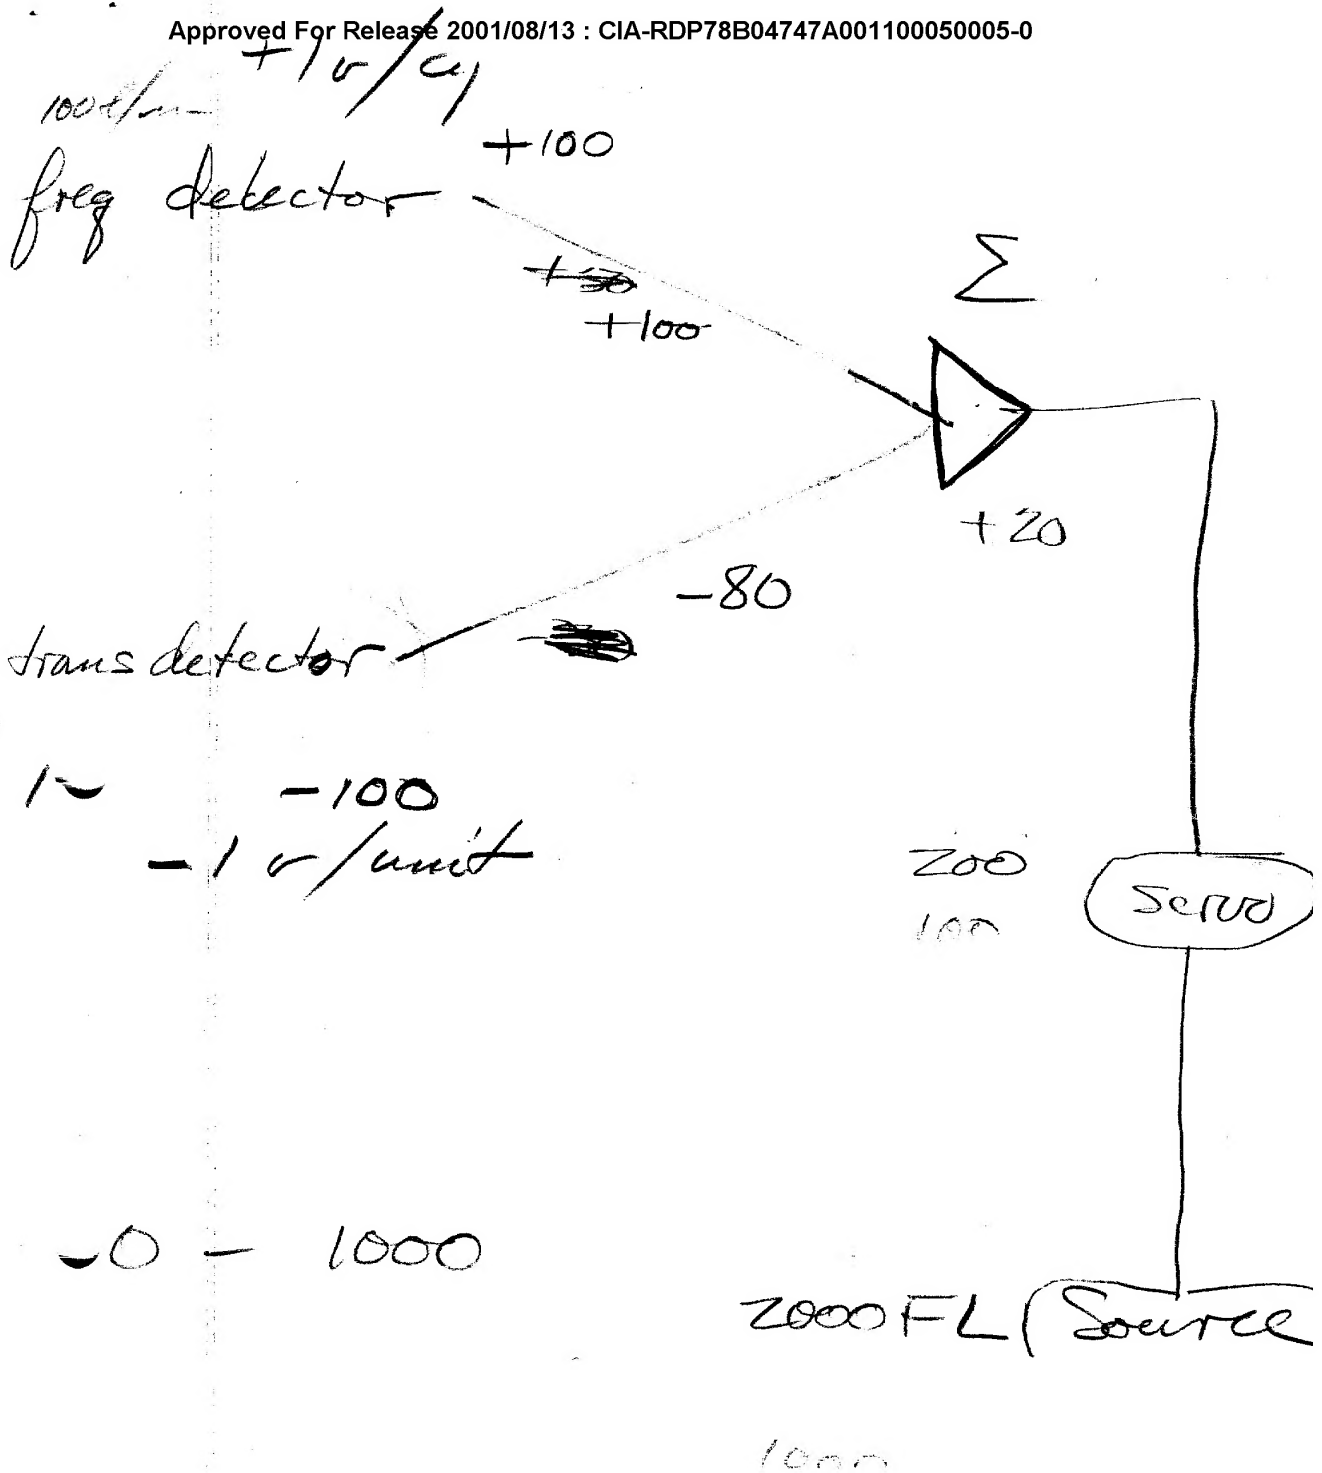 Approved For Release 2001/08/13 : CIA-RDP78B04747A001100050005-0
+1 v/cy
+100
freq detector
Σ
+30
+100
+20
-80
trans detector
-100
-1 v/unit
200
Servo
100
0 - 1000
2000 FL Source
1000